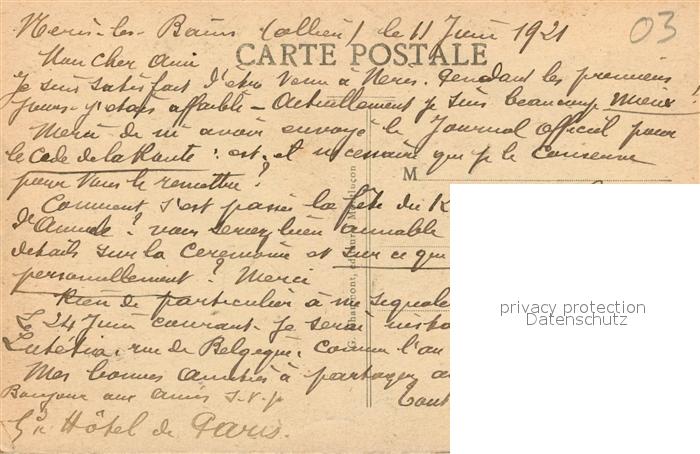 Neris-les-Bains (Allier) le 11 Juin 1921
03
CARTE POSTALE
Mon cher Ami
Je suis satisfait d'être venu à Neris. Pendant les premiers
jours j'étais affaibli - Actuellement je suis beaucoup mieux!
Merci de m'avoir envoyé le Journal Officiel pour
le Code de la Route : est-il nécessaire que je le conserve
pour vous le remettre?
M
Comment s'est passée la fête du
d'Annele? vous serez bien aimable
détails sur la cérémonie et sur ce que
personnellement? Merci
Rien de particulier à me signale
Le 24 Juin courant. Je serai
Lutétia, rue de Belgique, comme l'an
Mes bonnes amitiés à partager
Bonjour aux amis S.V.P
Tout
Gd Hôtel de Paris.
privacy protection
Datenschutz